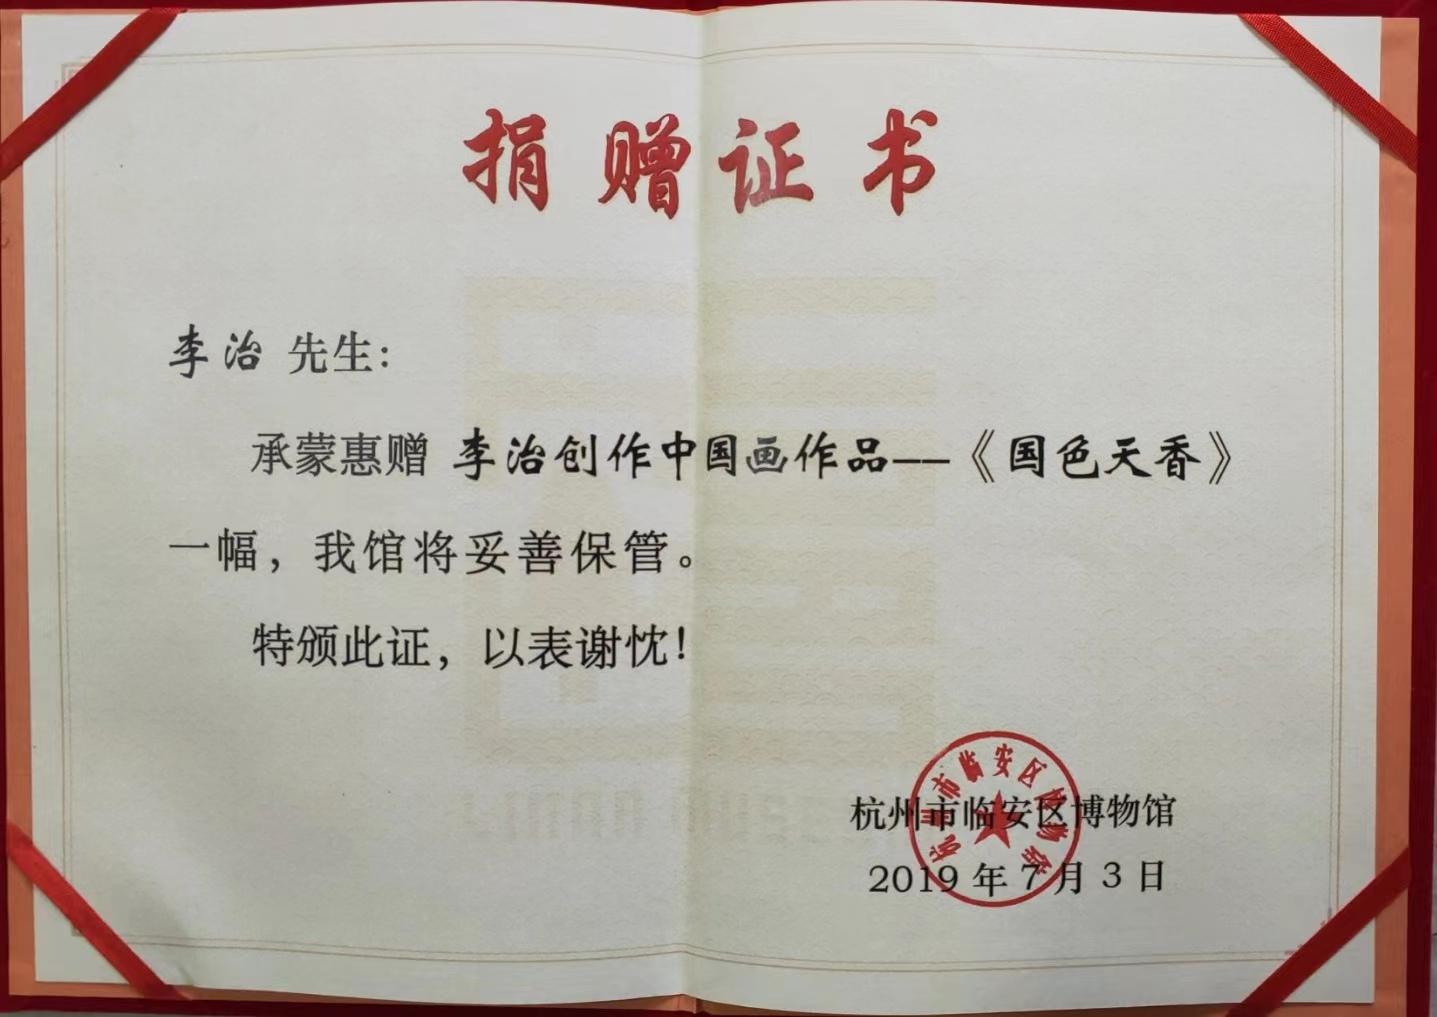 捐赠证书
李治 先生：
承蒙惠赠 李治创作中国画作品——《国色天香》
一幅，我馆将妥善保管。
特颁此证，以表谢忱！
杭州市临安区博物馆
2019 年 7 月 3 日
杭州市临安区博物馆